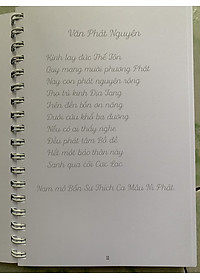 Văn Phát Nguyện
Kính lạy đức Thế Tôn
Quy mạng mười phương Phật
Nay con phát nguyện rộng
Thọ trì kinh Địa Tạng
Trên đền bốn ơn nặng
Dưới cứu khổ ba đường
Nếu có ai thấy nghe
Đều phát tâm Bồ đề
Hết một báo thân này
Sanh qua cõi Cực Lạc
Nam mô Bổn Sư Thích Ca Mâu Ni Phật.
11